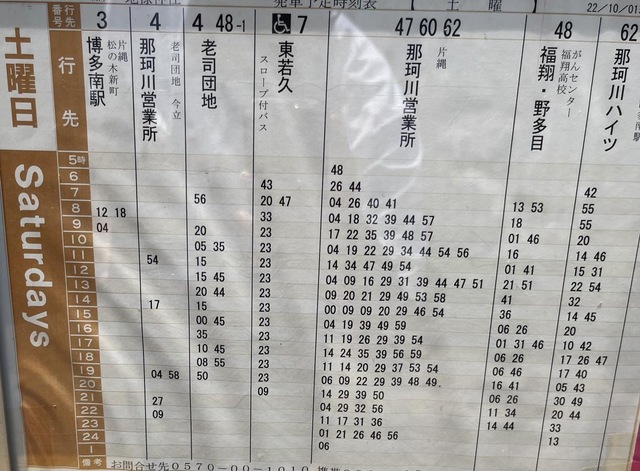 発車予定時刻表 【 土 曜 】 22/10/01
行先番号 3 4 4 48-1 7 47 60 62 48 62
土曜日
Saturdays
行先
片縄
松の木新町
博多南駅
老司団地 今立
那珂川営業所
老司団地
東若久
スロープ付バス
片縄
那珂川営業所
がんセンター
福翔高校
福翔・野多目
那珂川ハイツ
5時 48
6 43 26 44 42
7 56 20 47 04 26 40 41 13 53 55
8 12 18 33 04 18 32 39 44 57 18 55
9 04 20 23 17 22 35 39 48 57 01 46 20
10 05 35 23 04 19 22 29 34 44 54 56 16 14 46
11 54 15 23 14 34 47 49 54 01 41 15 31
12 15 45 23 04 09 16 29 31 39 44 47 51 21 51 22 54
13 20 44 23 09 20 21 29 49 53 58 41 32
14 17 15 23 00 09 09 20 29 46 54 36 14 45
15 00 45 23 04 19 39 49 59 06 26 20
16 35 23 11 19 26 29 39 54 01 31 46 10 42
17 10 45 23 14 24 35 39 56 59 06 26 17 26 47
18 08 55 23 11 14 20 29 37 53 54 06 46 17 40
19 04 58 50 23 06 09 22 29 39 48 49 16 41 05 43
20 09 14 29 39 50 06 26 30 49
21 27 04 29 32 56 11 34 20 44
22 09 11 17 31 36 14 44 33
23 01 21 26 46 56 13
24 06
1
備考 お問合せ先0570-00-1010